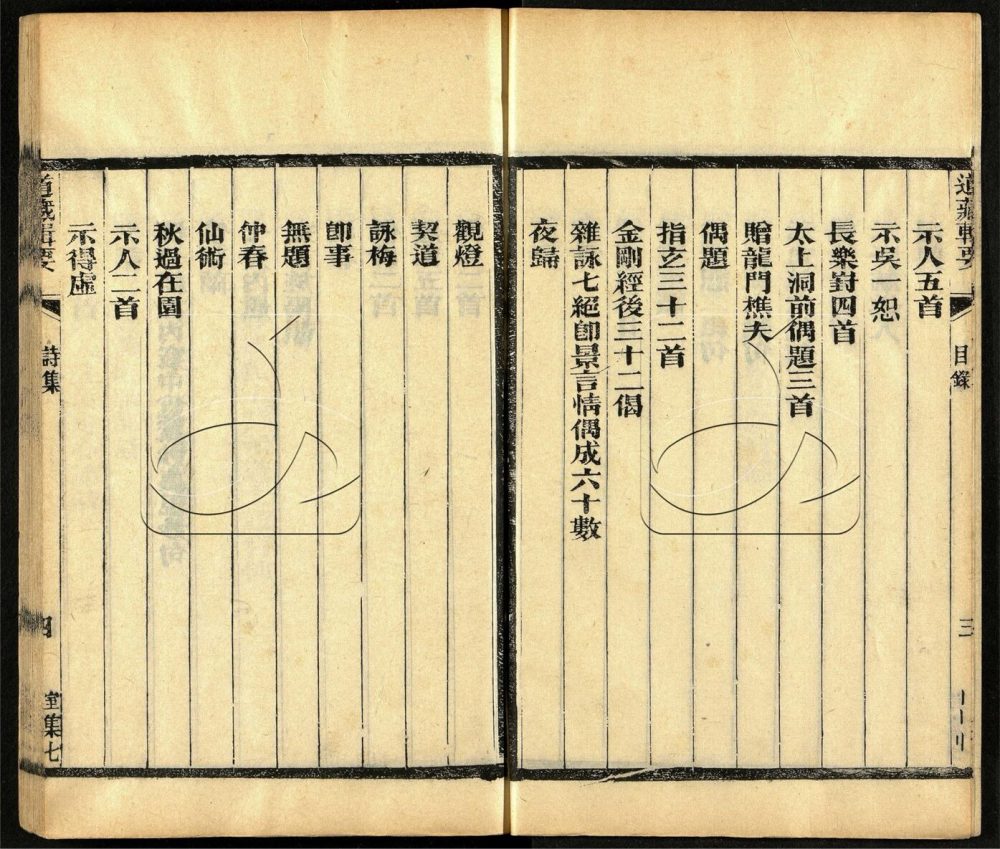 道藏輯要
目錄
三
示人五首
示吳一恕
長樂對四首
太上洞前偶題三首
贈龍門樵夫
偶題
指玄三十二首
金剛經後三十二偈
雜詠七絕卽景言情偶成六十數
夜歸
觀燈
契道
詠梅
卽事
無題
仲春
仙術
秋過在園
示人二首
示得虛
道藏輯要
詩集
四
室集七